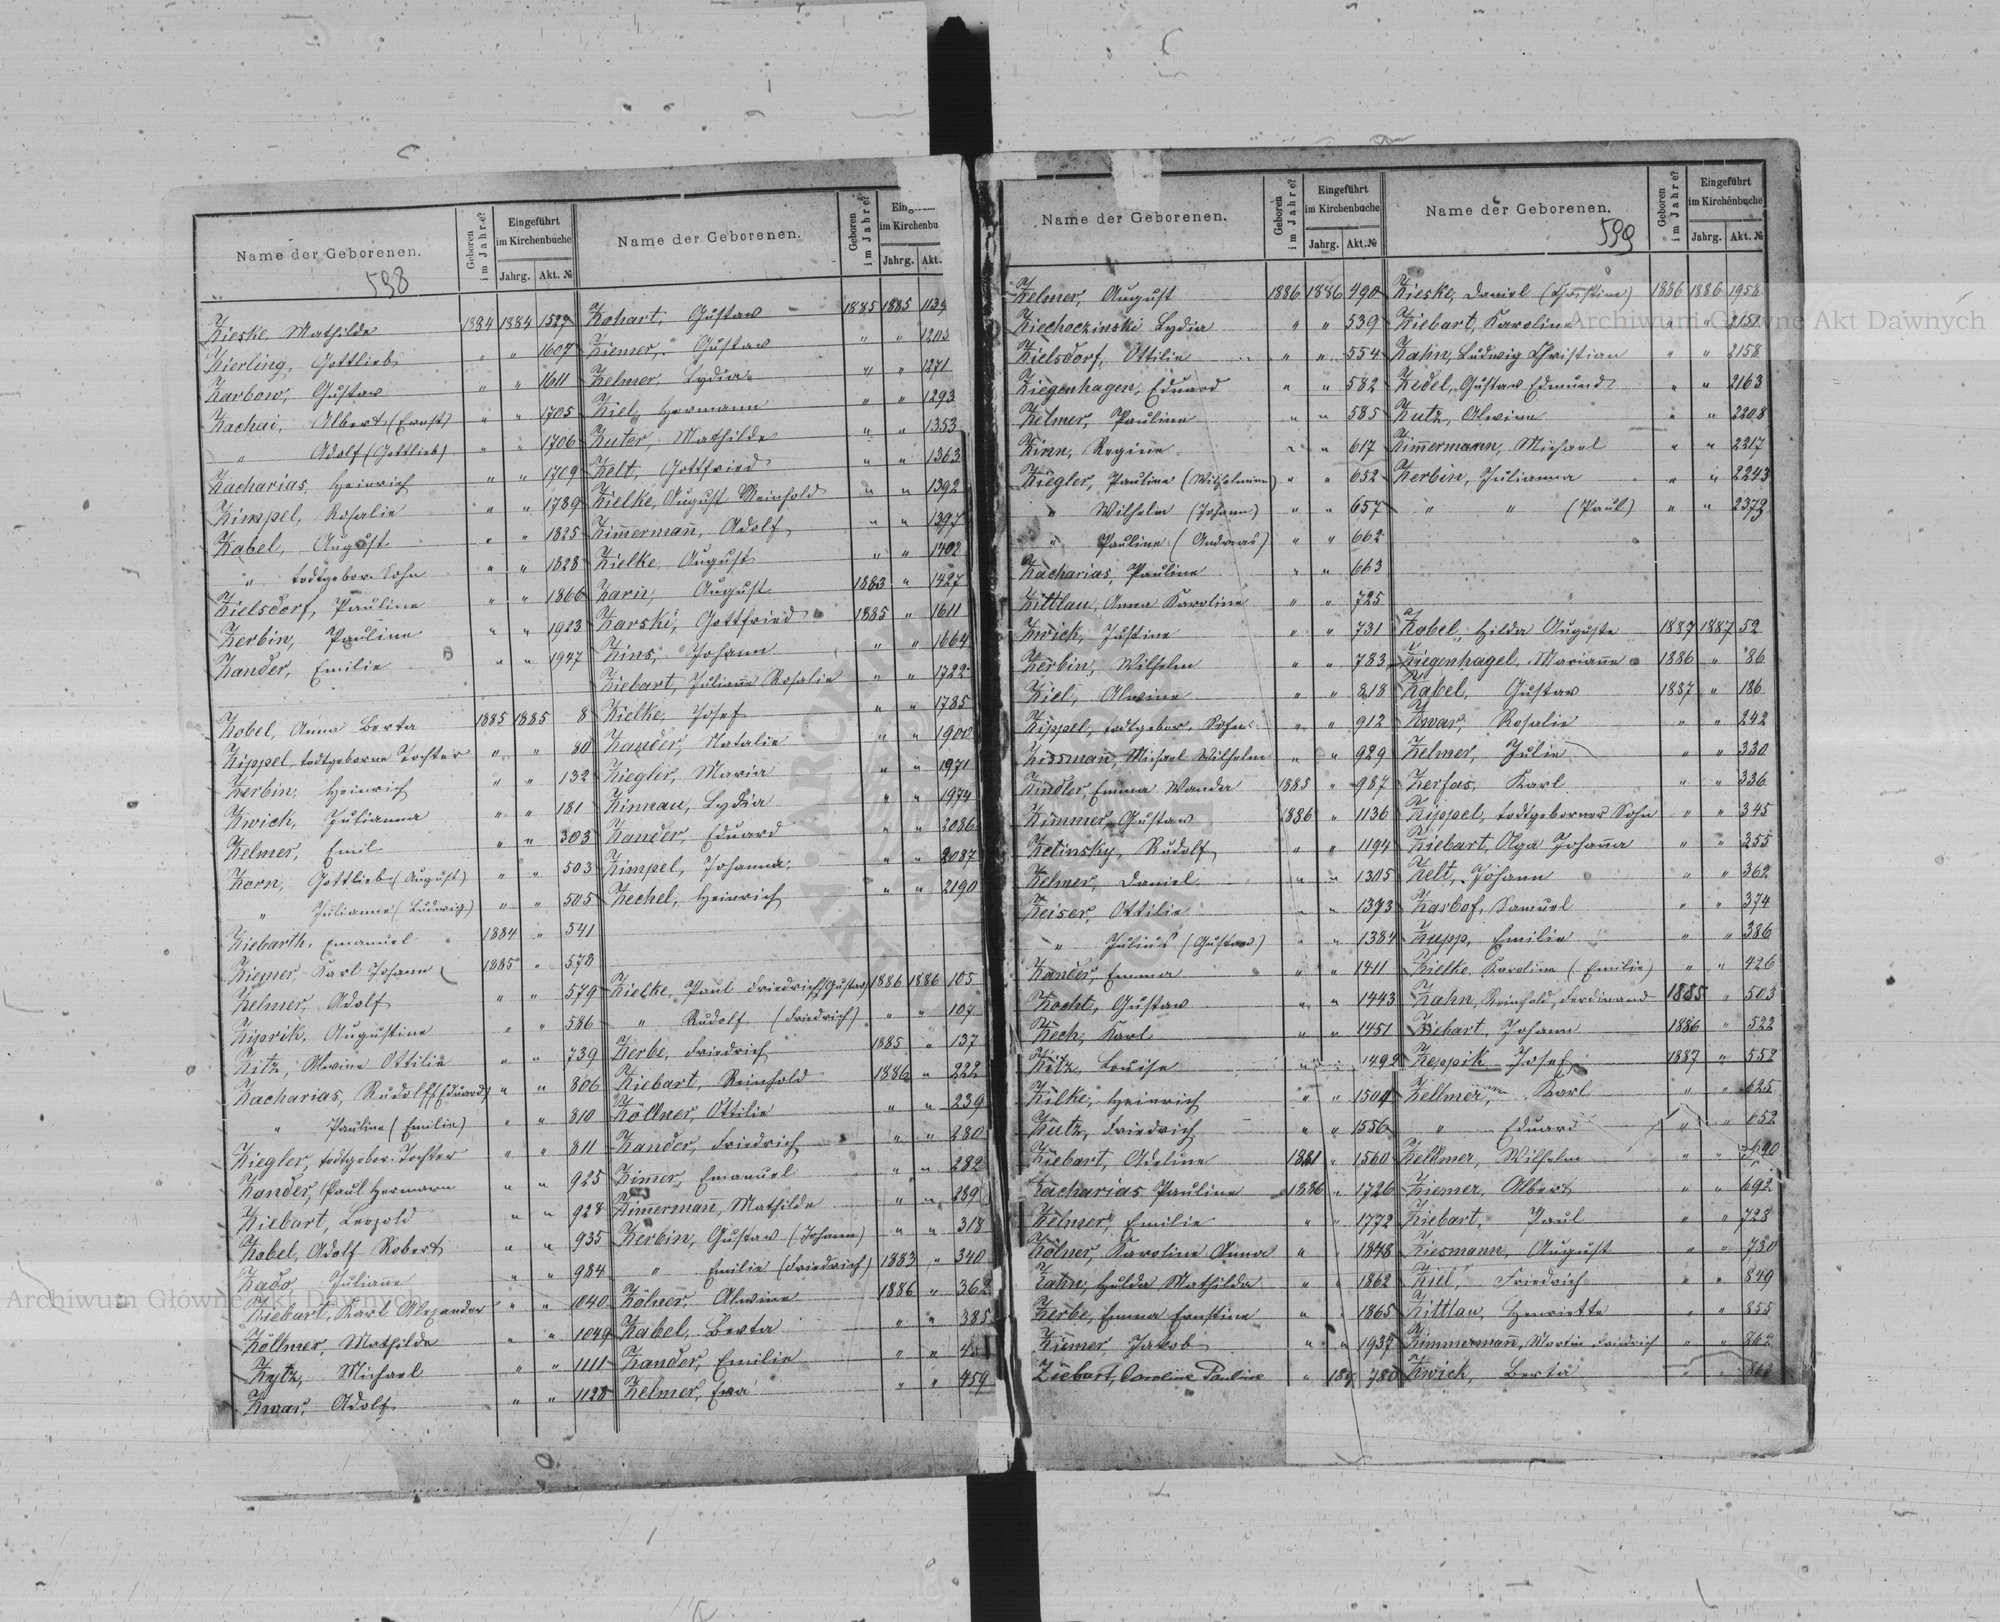 Name der Geborenen.
Geboren im Jahre?
Eingeführt im Kirchenbuche
Jahrg. Akt. №
598
Zieske, Mathilde 1884 1884 1529
Zierling, Gottlieb " " 1607
Zarbow, Gustav " " 1611
Zachai, Albert (Ernst) " " 1705
" Adolf (Gottlieb) " " 1706
Zacharias, Heinrich " " 1709
Zimpel, Rosalie " " 1789
Zabel, August " " 1825
" todtgebor. Sohn " " 1828
Zielsdorf, Pauline " " 1866
Zerbin, Pauline " " 1923
Zander, Emilie " " 1947
Zobel, Anna Berta 1885 1885 8
Zippel, todtgeborne Tochter " " 80
Zerbin, Heinrich " " 132
Zwich, Julianna " " 181
Zelmer, Emil " " 303
Zorn, Gottlieb (August) " " 503
" Julianne (Ludwig) " " 505
Ziebarth, Emanuel 1884 " 541
Ziemer, Karl Johann 1885 " 578
Zelmer, Adolf " " 579
Augustine " " 586
Zitz, Alwine Ottilie " " 739
Zacharias, Rudolf (Eduard) " " 806
" Pauline (Emilie) " " 810
Ziegler, todtgebor. Tochter " " 811
Zander, Paul Hermann " " 925
Ziebart, Leopold " " 928
Zabel, Adolf Robert " " 935
Zado, Julianne " " 984
Ziebart, Karl Alexander " " 1040
Zöllmer, Mathilde " " 1049
Michael " " 1111
Zwar, Adolf " " 1128
Name der Geborenen.
Geboren im Jahre?
im Kirchenbu
Jahrg. Akt.
Gustav 1885 1885 1139
Ziemer, Gustav " " 1203
Zelmer, Lydia " " 1271
Ziel, Hermann " " 1293
Zuter, Mathilde " " 1353
Zelt, Gottfried " " 1363
Zielke, August Reinhold " " 1392
Zimmermann, Adolf " " 1397
Zielke, August " " 1402
August 1883 " 1427
Zarski, Gottfried 1885 " 1611
Zins, Johann " " 1664
Ziebart, Julianna Rosalie " " 1722
Zielke, Josef " " 1785
Zander, Natalie " " 1900
Ziegler, Maria " " 1971
Zinnau, Lydia " " 1974
Zander, Eduard " " 2086
Zimpel, Johanna " " 2087
Zechel, Heinrich " " 2190
Zielke, Paul Friedrich (Gustav) 1886 1886 105
" Rudolf (Friedrich) " " 107
Zerbe, Friedrich 1885 " 137
Ziebart, Reinhold 1886 " 222
Zöllner, Ottilie " " 239
Zander, Friedrich " " 280
Zimmer, Emanuel " " 282
Zimmermann, Mathilde " " 289
Zerbin, Gustav (Johann) " " 318
" Emilie (Friedrich) 1883 " 340
Zölner, Alwine 1886 " 362
Zabel, Berta " " 385
Zander, Emilie " "
Zelmer, Eva " " 459
Name der Geborenen.
Geboren im Jahre?
Eingeführt im Kirchenbuche
Jahrg. Akt.№
Zelmer, August 1886 1886 490
Ziechoczinski Lydia " " 539
Zielsdorf, Ottilie " " 554
Ziegenhagen, Eduard " " 582
Zelmer, Pauline " " 585
Zinn, Regine " " 617
Ziegler, Pauline (Wilhelmine) " " 652
" Wilhelm (Johann) " " 657
" Pauline (Andreas) " " 662
Zacharias, Pauline " " 663
Zittlau, Anna Karoline " " 725
Zwick, Justine " " 731
Zerbin, Wilhelm " " 783
Ziel, Alwine " " 818
Zippel, todtgebor. Sohn " " 912
Michael Wilhelm " " 929
Zindler, Emma Wanda 1885 " 987
Zimmer, Gustav 1886 " 1136
Zelinsky, Rudolf " " 1194
Zelmer, Daniel " " 1305
Zeiser, Ottilie " " 1373
" Julius (Gustav) " " 1384
Zander, Emma " " 1411
Zocht, Gustav " " 1443
Zech, Karl " " 1451
Louise " " 1492
Zilke, Heinrich " " 1504
Zutz, Friedrich " " 1556
Ziebart, Adeline 1881 " 1560
Zacharias Pauline 1886 " 1726
Zelmer, Emilie " " 1772
Zölner, Karoline Anna " " 1848
Zahn, Hulda Mathilda " " 1862
Zerbe, Emma Ernstine " " 1865
Ziemer Jakob " " 1937
Ziebart, Caroline Pauline " 780
Name der Geborenen.
599
Geboren im Jahre?
Eingeführt im Kirchenbuche
Jahrg. Akt.№
Zieske, Daniel (Christine) 1886 1886 1958
Ziebart, Karoline " " 2151
Zahn, Ludwig Christian " " 2158
Zedel, Gustav Edmund " " 2163
Zutz, Alwine " " 2208
Zimmermann, Michael " " 2217
Zerbin, Julianna " " 2243
" " (Paul) " " 2373
Zobel, Hilda Auguste 1887 1887 52
Ziegenhagel, Marianne 1886 " 86
Zabel, Gustav 1887 " 186
Zwar, Rosalie " " 242
Zelmer, Julie " " 330
Zerfas, Karl " " 336
Zippel, todtgeborner Sohn " " 345
Ziebart, Olga Johanna " " 355
Zelt, Johann " " 362
Samuel " " 374
Zupp, Emilie " " 386
Zielke, Karoline (Emilie) " " 426
Zahn, Reinhold Ferdinand 1885 " 503
Ziebart, Johann 1886 " 522
Zeppik, Josef 1887 " 552
Zellmer, Karl " " 625
" Eduard " " 652
Zellmer, Wilhelm " " 690
Ziemer, Albert " " 692
Ziebart, Paul " " 728
Ziesmann, August " " 730
Ziel, Friedrich " " 849
Zittlau, Henriette " " 855
Zimmermann, Martin Friedrich " " 862
Zwick, Berta " "
Archiwum Główne Akt Dawnych
Archiwum Główne Akt Dawnych